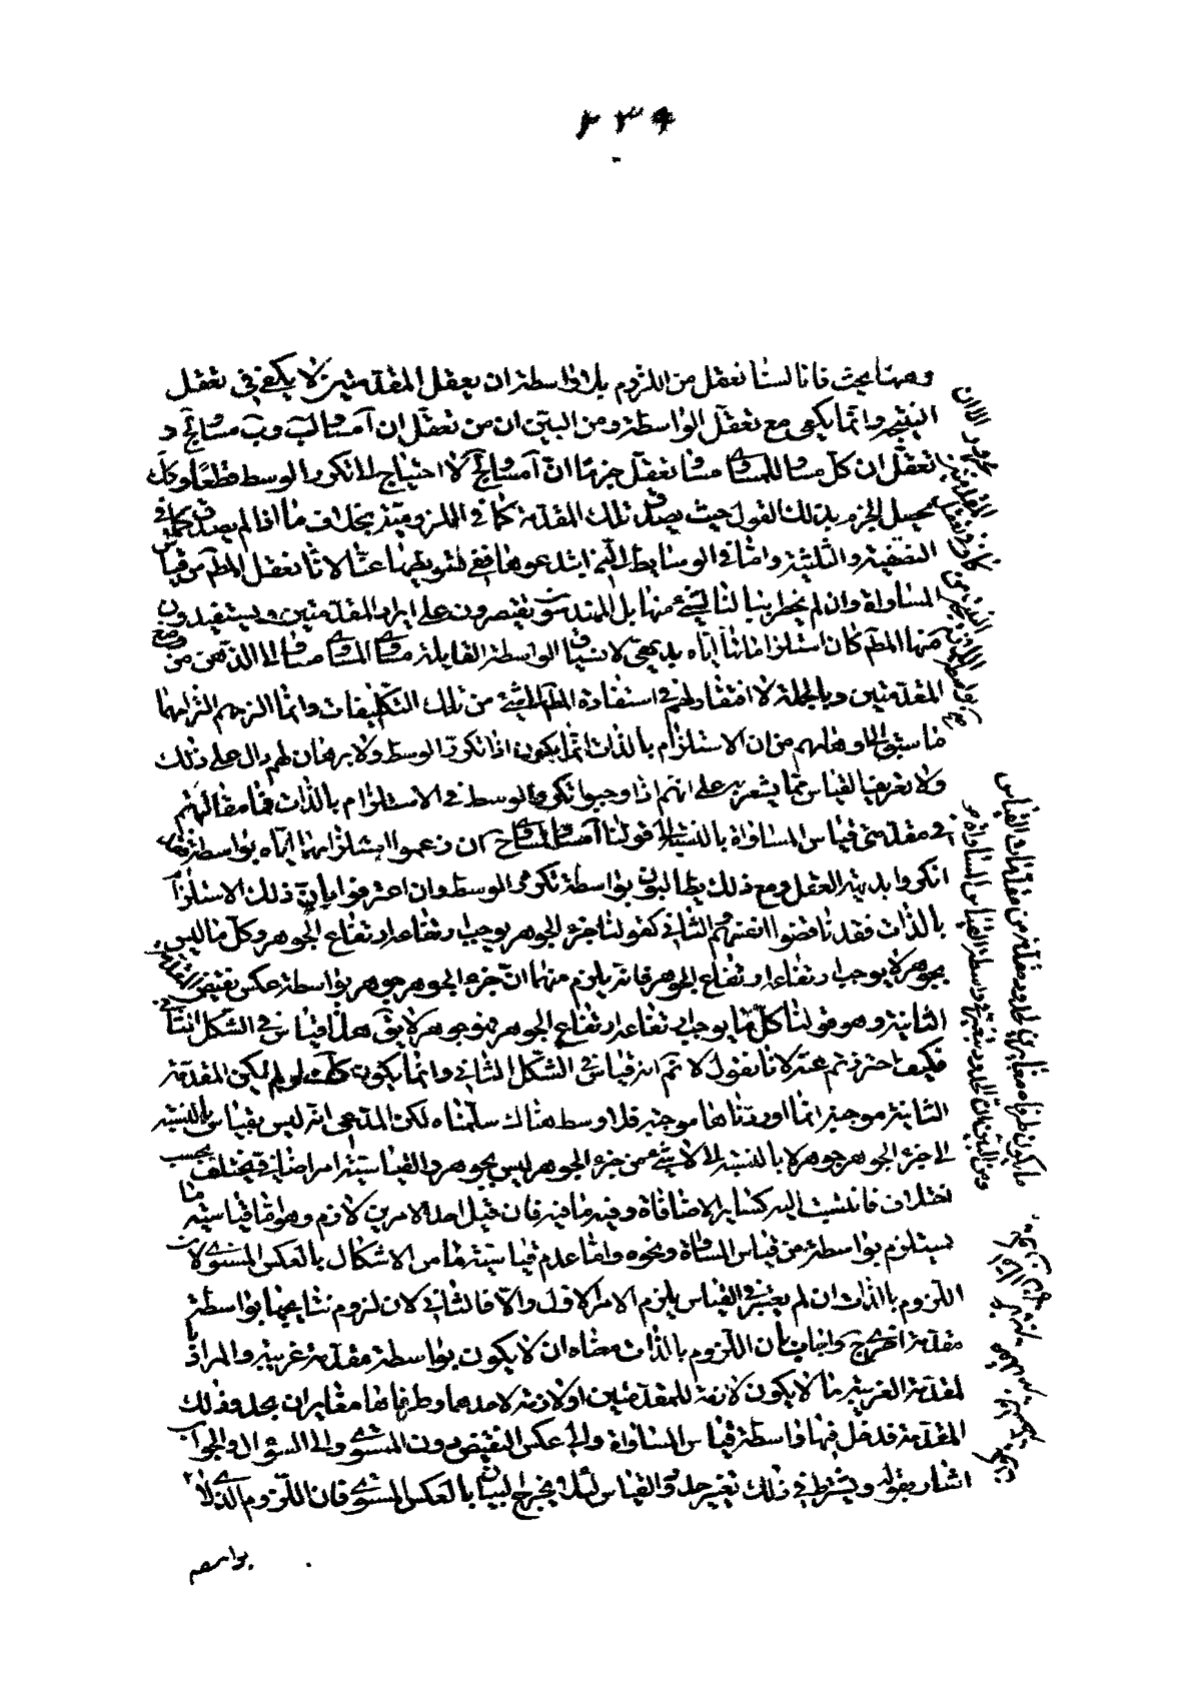 ٢٣٩
وههنا بحث فانا لسنا نعقل من اللزوم بلا واسطة ان يعقل المقدمتين لا يكفى فى تعقل
النتيجة وانما يكفى مع تعقل الواسطة ومن البين ان من تعقل ان آ مساو لب وب مساو لج و
تعقل ان كل مساو للمساوى مساو تعقل جزما ان آ مساو لج لا احتياج الى تكرر الوسط قطعا وكك
يحصل الجزم بذلك القول حيث يصدق تلك المقدمة كما فى الملزومية بخلاف ما اذا لم يصدق كما فى
النصفية والثلثية واما فى الوسايط التى ابتدعوها فهى لتنويطها عنا لانا نعقل المط من قياس
المساواة وان لم يخطر ببالنا شئ منها بل المهندسون يقتصرون على ايراد المقدمتين ويستفيدون
منها المط كان استلزامها اياه بديهى لانسياق الواسطة القايلة مساوى المساوى مساو الى الذهن من وضع
المقدمتين وبالجملة لا افتقار لهم فى استفادة المط الى شئ من تلك التكليفات وانما الزمهم التزامها
ما سبق الى اوهامهم من ان الاستلزام بالذات انما يكون اذا تكرر الوسط ولا برهان لهم دال على ذلك
ولا تعريف القياس مما يشعر به على انهم اذا وجبوا تكرر الوسط فى الاستلزام بالذات فما مقالتهم
فى مقدمتى قياس المساواة بالنسبة الى قولنا آ مساو لمساوى ج ان زعموا استلزامهما اياه بواسطة فقد
انكروا بديهة العقل ومع ذلك يطالبون بواسطة تكرر الوسط وان اعترفوا بان ذلك الاستلزام
بالذات فقد ناقضوا انفسهم الثانى كقولنا جزء الجوهر يوجب ارتفاعه ارتفاع الجوهر وكل ما ليس
بجوهر لا يوجب ارتفاعه ارتفاع الجوهر فانه يلزم منهما ان جزء الجوهر جوهر بواسطة عكس نقيض المقدمة
الثانية وهو قولنا كل ما يوجب ارتفاعه ارتفاع الجوهر فهو جوهر لا يق هذا قياس فى الشكل الثانى
فكيف احترزتم عنه لانا نقول لا نم انه قياس فى الشكل الثانى وانما يكون كك لو لم يكن المقدمة
الثانية موجبة انما اوردناها موجبة فلا وسط هناك سلمناه لكن المدعى انه ليس بقياس بالنسبة
الى جزء الجوهر جوهر لا بالنسبة الى لا شئ من جزء الجوهر ليس بجوهر والقياسية امر اضافى يختلف بحسب
اختلاف ما نسبت اليه كساير الاضافات وفيه ما فيه فان قيل احد الامرين لازم وهو اما قياسية ما
يستلزم بواسطة من قياس المساواة ونحوه واما عدم قياسية ما من الاشكال بالعكس المستوى لان
اللزوم بالذات ان لم يعتبر فى القياس يلزم الامر الاول والا فالثانى لان لزوم نتايجها بواسطة
مقدمة اخرى واجاب بان اللزوم بالذات معناه ان لا يكون بواسطة مقدمة غريبة والمراد با
لمقدمة الغريبة ما لا يكون لازمة للمقدمتين او لازمة لاحدهما وطرفاها مغايران بحدود تلك
المقدمة فدخل فيها واسطة قياس المساواة والى عكس النقيض دون المستوى والى السؤال والجواب
اشار بقوله ويشترط فى ذلك تغير حدود القياس لئلا يخرج البيان بالعكس المستوى فان اللزوم الذى لا
بواسطة
ما يكون طرفاه مغايرين لحدود مقدمة من مقدمات القياس
ومن البين ان الحدود متغيرة فى واسطة القياس المساواة